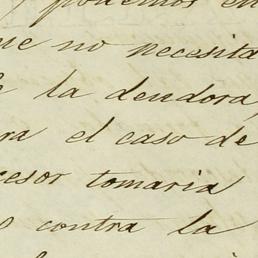 podemos en
que no necesita
de la deudora,
ra el caso de
cesor tomaria
contra la